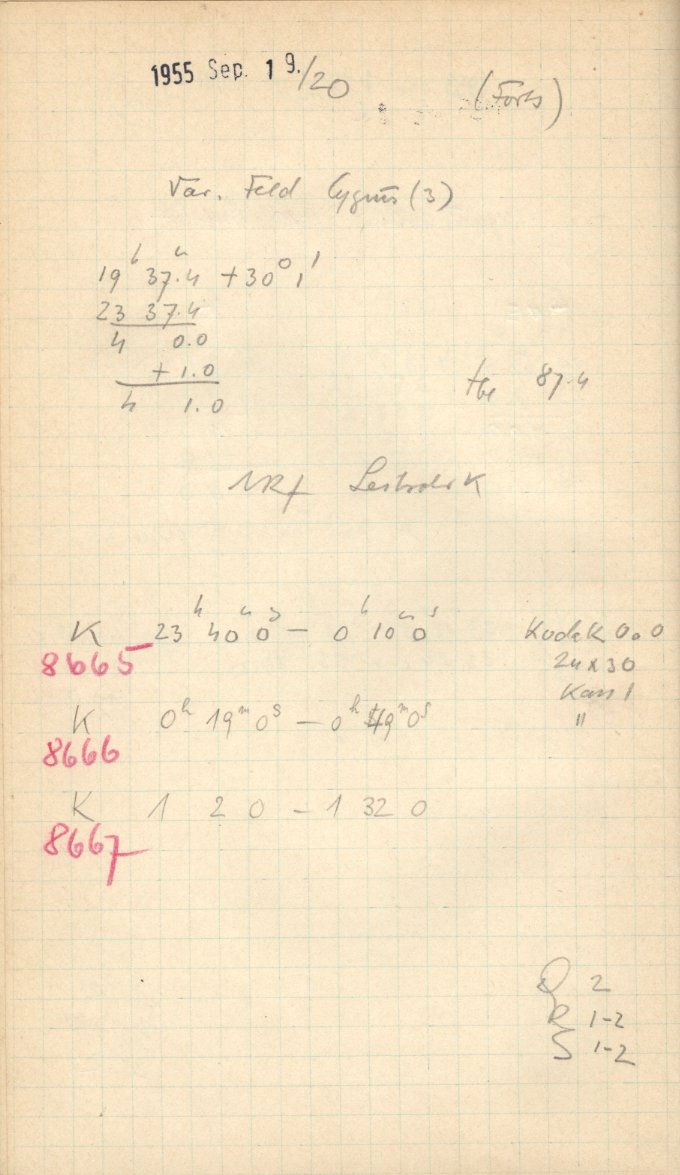 1955 Sep. 19./20 (Forts)
Var. Feld Cygnus (3)
19ʰ 37.4ᵐ +30° 1'
23 37.4
4 0.0
+ 1.0
4 1.0
87.4
K 23ʰ 40ᵐ 0ˢ – 0ʰ 10ᵐ 0ˢ Kodak 0.0
8665 24 x 30
Kass 1
K 0ʰ 19ᵐ 0ˢ – 0ʰ 49ᵐ 0ˢ "
8666
K 1 2 0 – 1 32 0
8667
Q 2
R 1-2
S 1-2